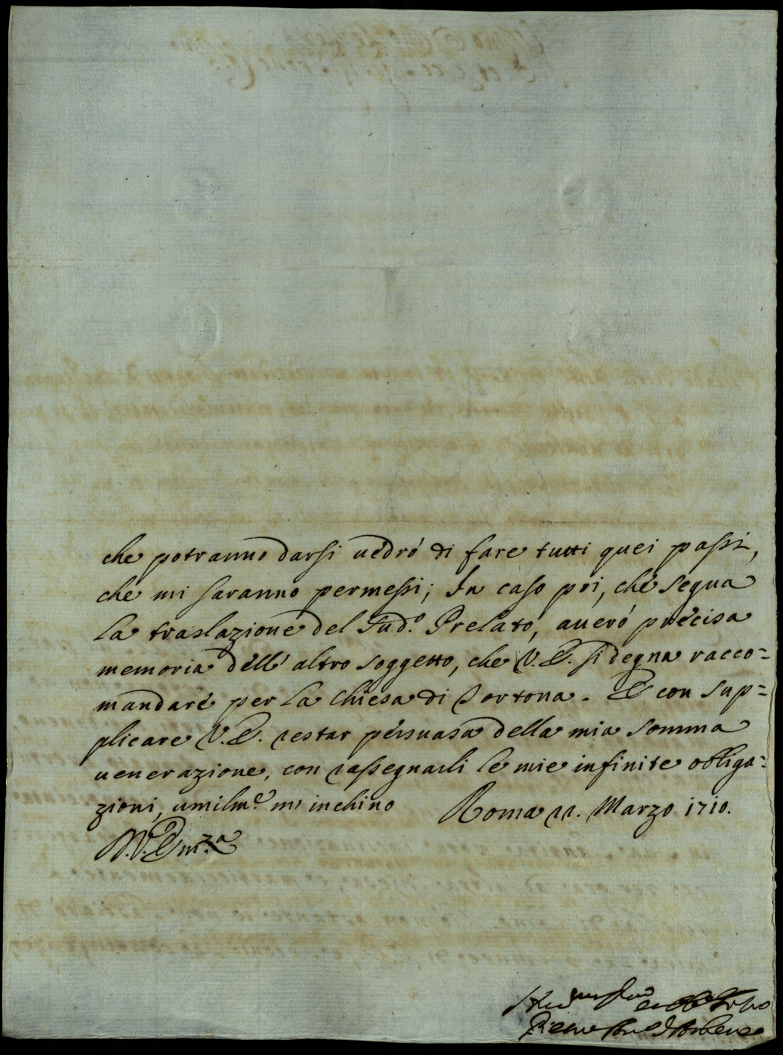 che potranno darsi vedrò di fare tutti quei passi,
che mi saranno permessi; In caso poi, che segua
la traslazione del Sud.º Prelato, averò precisa
memoria dell' altro soggetto, che V.E. si degna racco=
mandare per la Chiesa di Tortona. E con sup=
plicare V.E. restar persuasa della mia somma
venerazione, con rassegnarli le mie infinite obliga=
zioni, umilm.e m' inchino Roma 22. Marzo 1710.